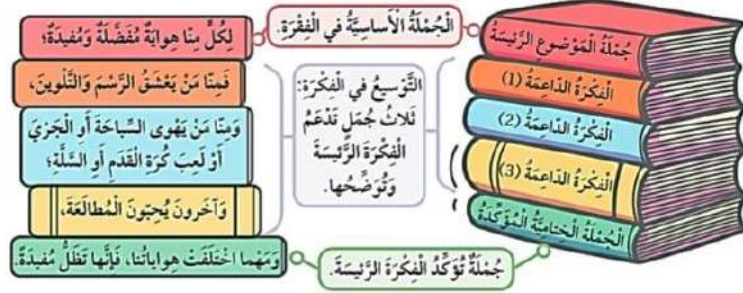 جُمْلَةُ الْمَوْضوعِ الرَّئيسَةُ
الْفِكْرَةُ الدّاعِمَةُ (1)
الْفِكْرَةُ الدّاعِمَةُ (2)
الْفِكْرَةُ الدّاعِمَةُ (3)
الْجُمْلَةُ الْخِتامِيَّةُ الْمُؤَكِّدَةُ
الْجُمْلَةُ الْأَساسِيَّةُ في الْفِقْرَةِ.
التَّوْسيعُ في الْفِكْرَةِ:
ثَلاثُ جُمَلٍ تَدْعَمُ
الْفِكْرَةَ الرَّئيسَةَ
وَتُوَضِّحُها.
جُمْلَةٌ تُؤَكِّدُ الْفِكْرَةَ الرَّئيسَةَ.
لِكُلٍّ مِنّا هِوايَةٌ مُفَضَّلَةٌ وَمُفيدَةٌ؛
فَمِنّا مَنْ يَعْشَقُ الرَّسْمَ وَالتَّلْوينَ،
وَمِنّا مَنْ يَهْوى السِّباحَةَ أَوِ الْجَرْيَ
أَوْ لَعِبَ كُرَةِ الْقَدَمِ أَوِ السَّلَّةِ؛
وَآخَرونَ يُحِبّونَ الْمُطالَعَةَ،
وَمَهْما اخْتَلَفَتْ هِواياتُنا، فَإِنَّها تَظَلُّ مُفيدَةً.